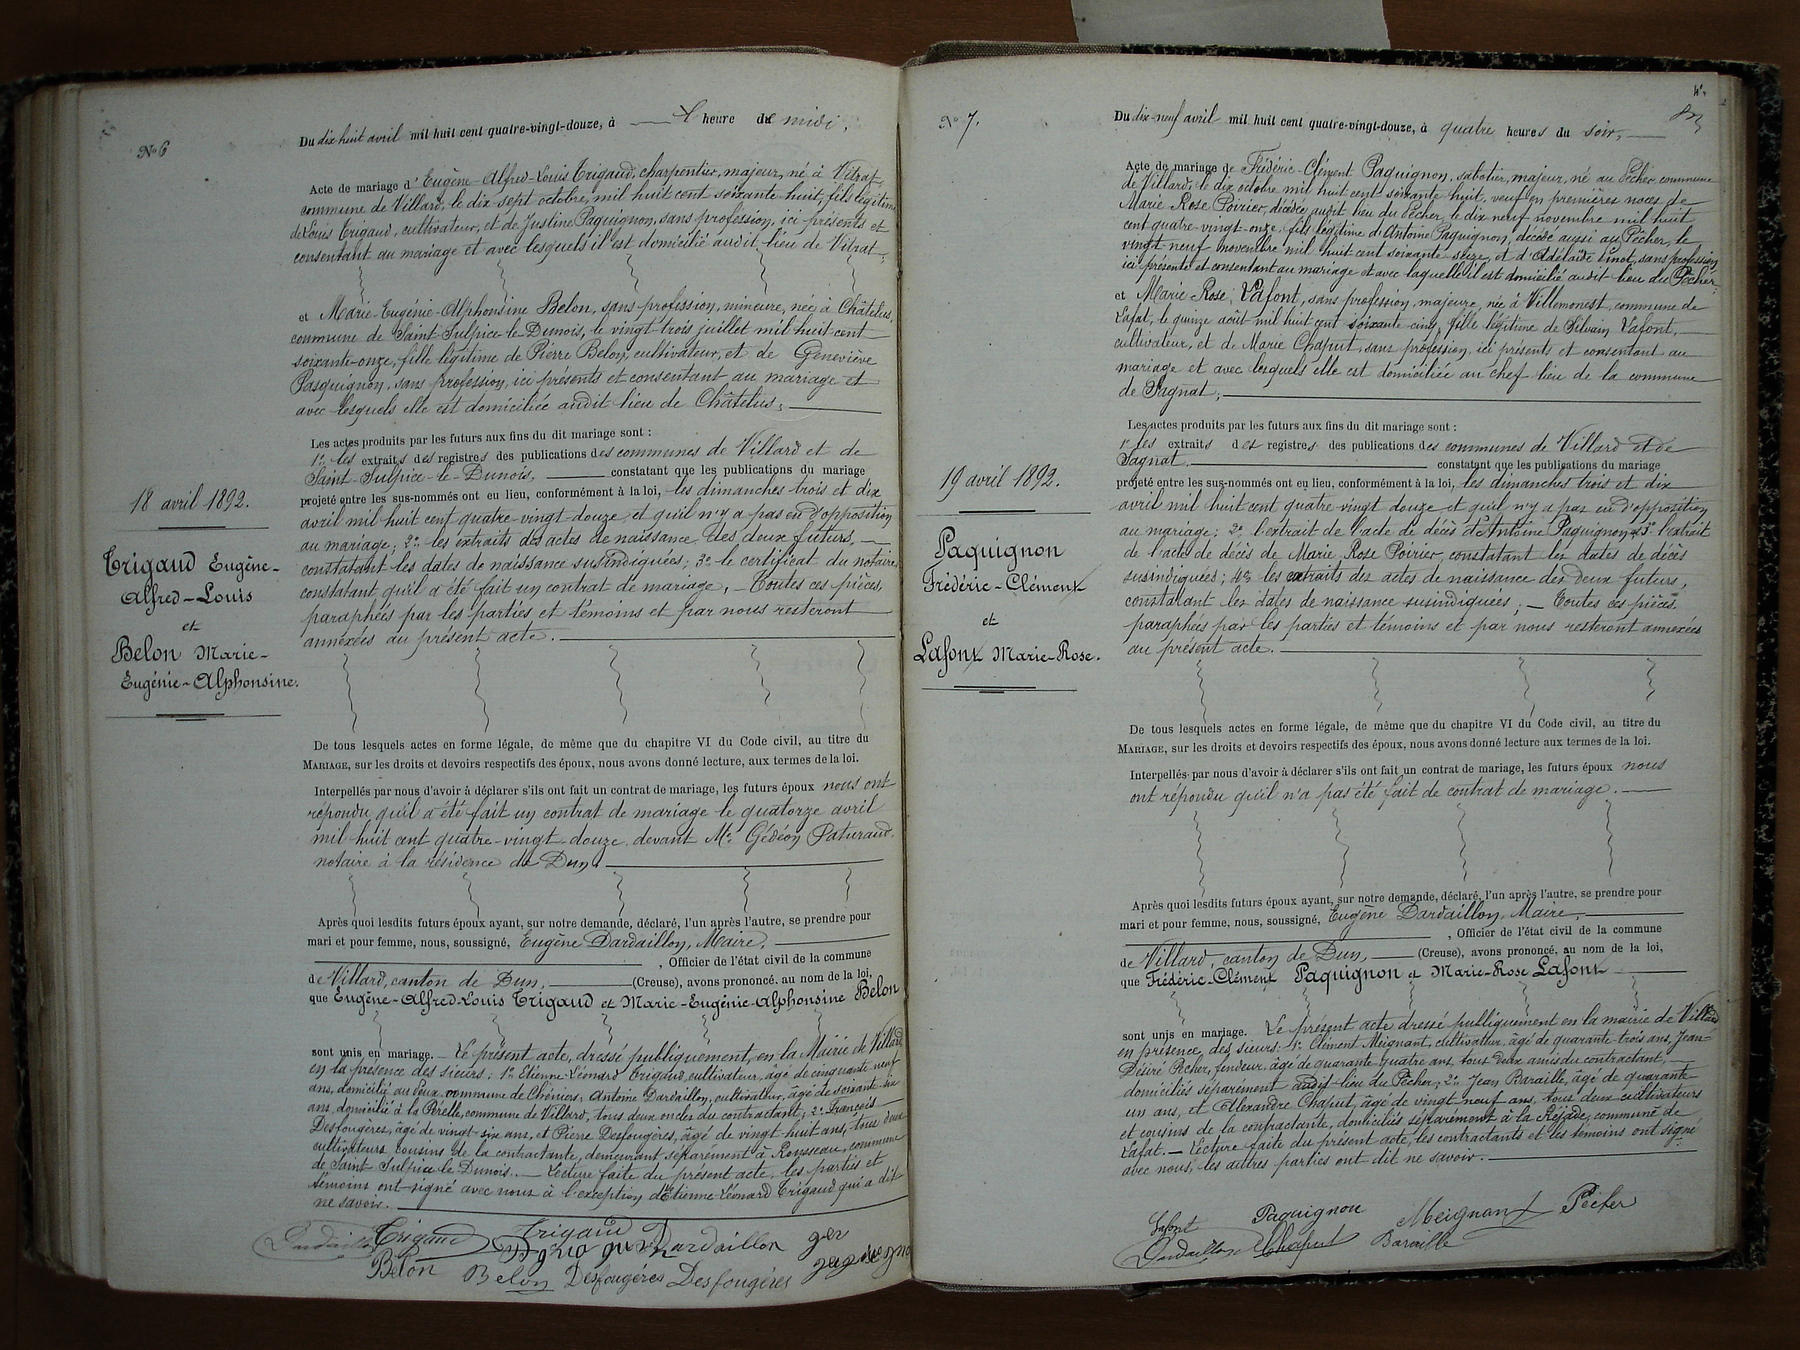 No 6
Du dix huit avril mil huit cent quatre-vingt-douze, à heure de midi.
Acte de mariage d'Eugène-Alfred-Louis Trigaud, charpentier, majeur, né à Vitrat,
commune de Villard, le dix sept octobre, mil huit cent soixante huit, fils légitime
de Louis Trigaud, cultivateur, et de Justine Paquignon, sans profession, ici présents et
consentant au mariage et avec lesquels il est domicilié audit lieu de Vitrat;
et Marie-Eugénie-Alphonsine Belon, sans profession, mineure, née à Châtelus,
commune de Saint-Sulpice-le-Dunois, le vingt trois juillet mil huit cent
soixante-onze, fille légitime de Pierre Belon, cultivateur, et de Geneviève
Pasquignon, sans profession, ici présents et consentant au mariage et
avec lesquels elle est domiciliée audit lieu de Châtelus;
Les actes produits par les futurs aux fins du dit mariage sont :
1° les extraits des registres des publications des communes de Villard et de
Saint-Sulpice-le-Dunois, constatant que les publications du mariage
projeté entre les sus-nommés ont eu lieu, conformément à la loi, les dimanches trois et dix
avril mil huit cent quatre-vingt douze et qu'il n'y a pas eu d'opposition
au mariage; 2° les extraits des actes de naissance des deux futurs,
constatant les dates de naissance susindiquées; 3° le certificat du notaire
constatant qu'il a été fait un contrat de mariage, - Toutes ces pièces,
paraphées par les parties et témoins et par nous resteront
annexées au présent acte.
18 avril 1892.
Trigaud Eugène-
Alfred-Louis
et
Belon Marie-
Eugénie-Alphonsine.
De tous lesquels actes en forme légale, de même que du chapitre VI du Code civil, au titre du
MARIAGE, sur les droits et devoirs respectifs des époux, nous avons donné lecture, aux termes de la loi.
Interpellés par nous d'avoir à déclarer s'ils ont fait un contrat de mariage, les futurs époux nous ont
répondu qu'il a été fait un contrat de mariage le quatorze avril
mil huit cent quatre-vingt douze devant Me Gédéon Paturaud
notaire à la résidence de Dun.
Après quoi lesdits futurs époux ayant, sur notre demande, déclaré, l'un après l'autre, se prendre pour
mari et pour femme, nous, soussigné, Eugène Dardaillon, Maire,
, Officier de l'état civil de la commune
de Villard, canton de Dun, (Creuse), avons prononcé, au nom de la loi,
que Eugène-Alfred-Louis Trigaud et Marie-Eugénie-Alphonsine Belon
sont unis en mariage. - Le présent acte, dressé publiquement, en la Mairie de Villard
en la présence des sieurs : 1° Etienne Léonard Trigaud, cultivateur, âgé de cinquante neuf
ans, domicilié au commune de Chéniers; Antoine Dardaillon, cultivateur, âgé de soixante six
ans, domicilié à la Pérelle, commune de Villard, tous deux oncles du contractant; 2° François
Desfougères, âgé de vingt-six ans, et Pierre Desfougères, âgé de vingt-huit ans, tous deux
cultivateurs cousins de la contractante, demeurant séparément à Rousseau, commune
de Saint Sulpice le Dunois. - Lecture faite du présent acte, les parties et
témoins ont signé avec nous à l'exception d'Etienne-Léonard Trigaud qui a dit
ne savoir.
Dardaillon Trigaud Trigaud Dardaillon
Belon Belon Desfougères Desfougères
No 7.
Du dix-neuf avril mil huit cent quatre-vingt-douze, à quatre heures du soir,
Acte de mariage de Frédéric-Clément Paquignon, sabotier, majeur, né au Pêcher, commune
de Villard, le dix octobre mil huit cent soixante huit, veuf en premières noces de
Marie Rose Poirier, décédée audit lieu du Pêcher, le dix neuf novembre mil huit
cent quatre-vingt-onze, fils légitime d'Antoine Paquignon, décédé aussi au Pêcher, le
vingt neuf novembre mil huit cent soixante-seize, et d'Adélaïde Binot, sans profession,
ici présente et consentant au mariage et avec laquelle il est domicilié audit lieu du Pêcher,
et Marie-Rose Lafont, sans profession, majeure, née à Villemonest, commune de
Lafat, le quinze août mil huit cent soixante cinq, fille légitime de Silvain Lafont,
cultivateur, et de Marie Chaput, sans profession, ici présents et consentant au
mariage et avec lesquels elle est domiciliée au chef lieu de la commune
de Sagnat;
Les actes produits par les futurs aux fins du dit mariage sont :
1° les extraits des registres des publications des communes de Villard et de
Sagnat constatant que les publications du mariage
projeté entre les sus-nommés ont eu lieu, conformément à la loi, les dimanches trois et dix
avril mil huit cent quatre vingt douze et qu'il n'y a pas eu d'opposition
au mariage; 2° l'extrait de l'acte de décès d'Antoine Paquignon; 3° l'extrait
de l'acte de décès de Marie Rose Poirier, constatant les dates de décès
susindiquées; 4° les extraits des actes de naissance des deux futurs,
constatant les dates de naissance susindiquées; - Toutes ces pièces
paraphées par les parties et témoins et par nous resteront annexées
au présent acte.
19 avril 1892.
Paquignon
Frédéric-Clément
et
Lafont Marie-Rose.
De tous lesquels actes en forme légale, de même que du chapitre VI du Code civil, au titre du
MARIAGE, sur les droits et devoirs respectifs des époux, nous avons donné lecture aux termes de la loi.
Interpellés par nous d'avoir à déclarer s'ils ont fait un contrat de mariage, les futurs époux nous
ont répondu qu'il n'a pas été fait de contrat de mariage.
Après quoi lesdits futurs époux ayant, sur notre demande, déclaré, l'un après l'autre, se prendre pour
mari et pour femme, nous, soussigné, Eugène Dardaillon, Maire,
, Officier de l'état civil de la commune
de Villard, canton de Dun, (Creuse), avons prononcé, au nom de la loi,
que Frédéric-Clément Paquignon et Marie-Rose Lafont
sont unis en mariage. Le présent acte dressé publiquement en la mairie de Villard
en présence des sieurs : 1° Clément Meignant, cultivateur, âgé de quarante trois ans, Jean-
Désiré Pêcher, fendeur, âgé de quarante quatre ans, tous deux amis du contractant,
domiciliés séparément audit lieu du Pêcher; 2° Jean Baraille, âgé de quarante
un ans, et Alexandre Chaput, âgé de vingt neuf ans, tous deux cultivateurs
et cousins de la contractante, domiciliés séparément à la Réjade, commune de
Lafat. - Lecture faite du présent acte, les contractants et les témoins ont signé
avec nous, les autres parties ont dit ne savoir.
Lafont Paquignon Meignant Pécher
Dardaillon Chaput Baraille